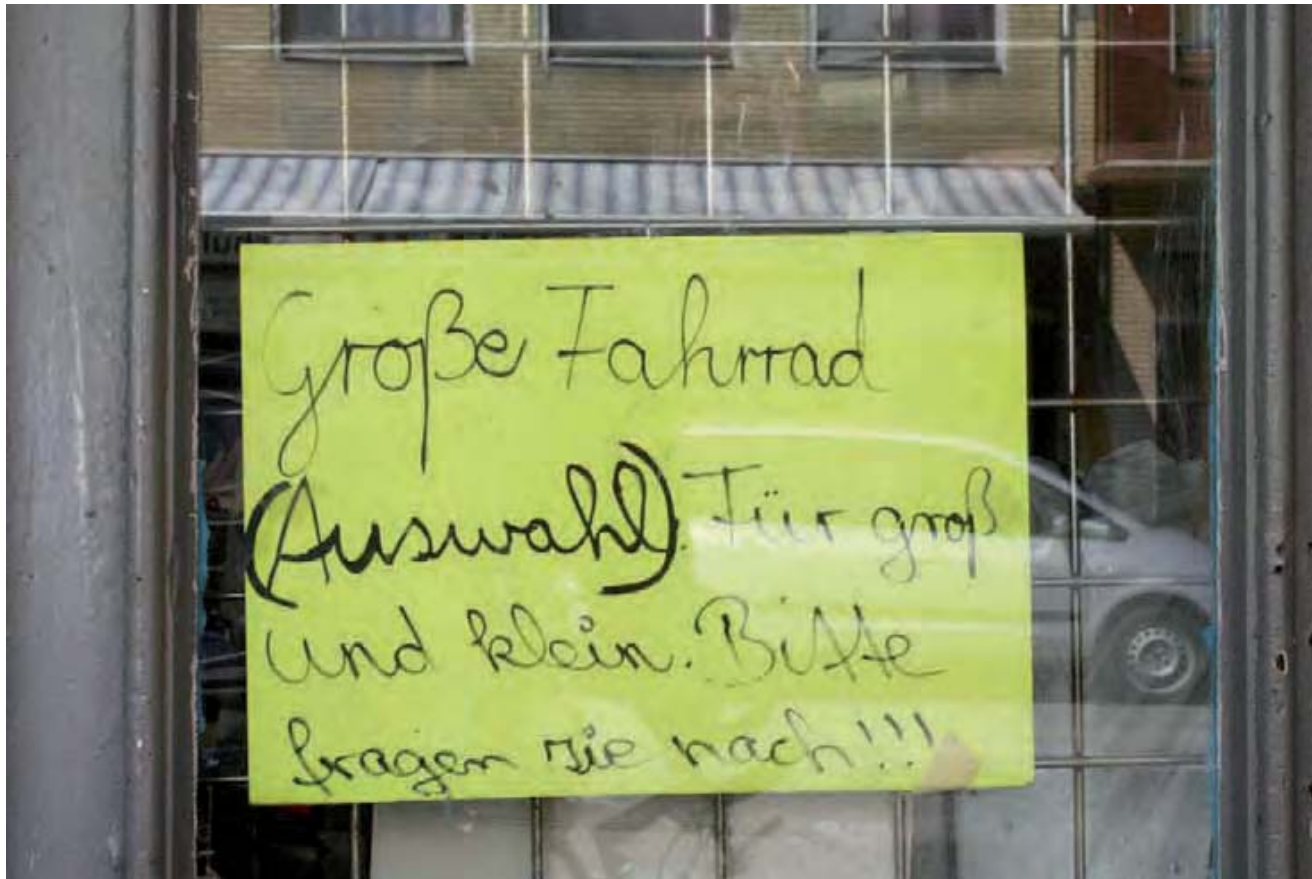 Große Fahrrad
(Auswahl). Für groß
und klein. Bitte
fragen sie nach!!!